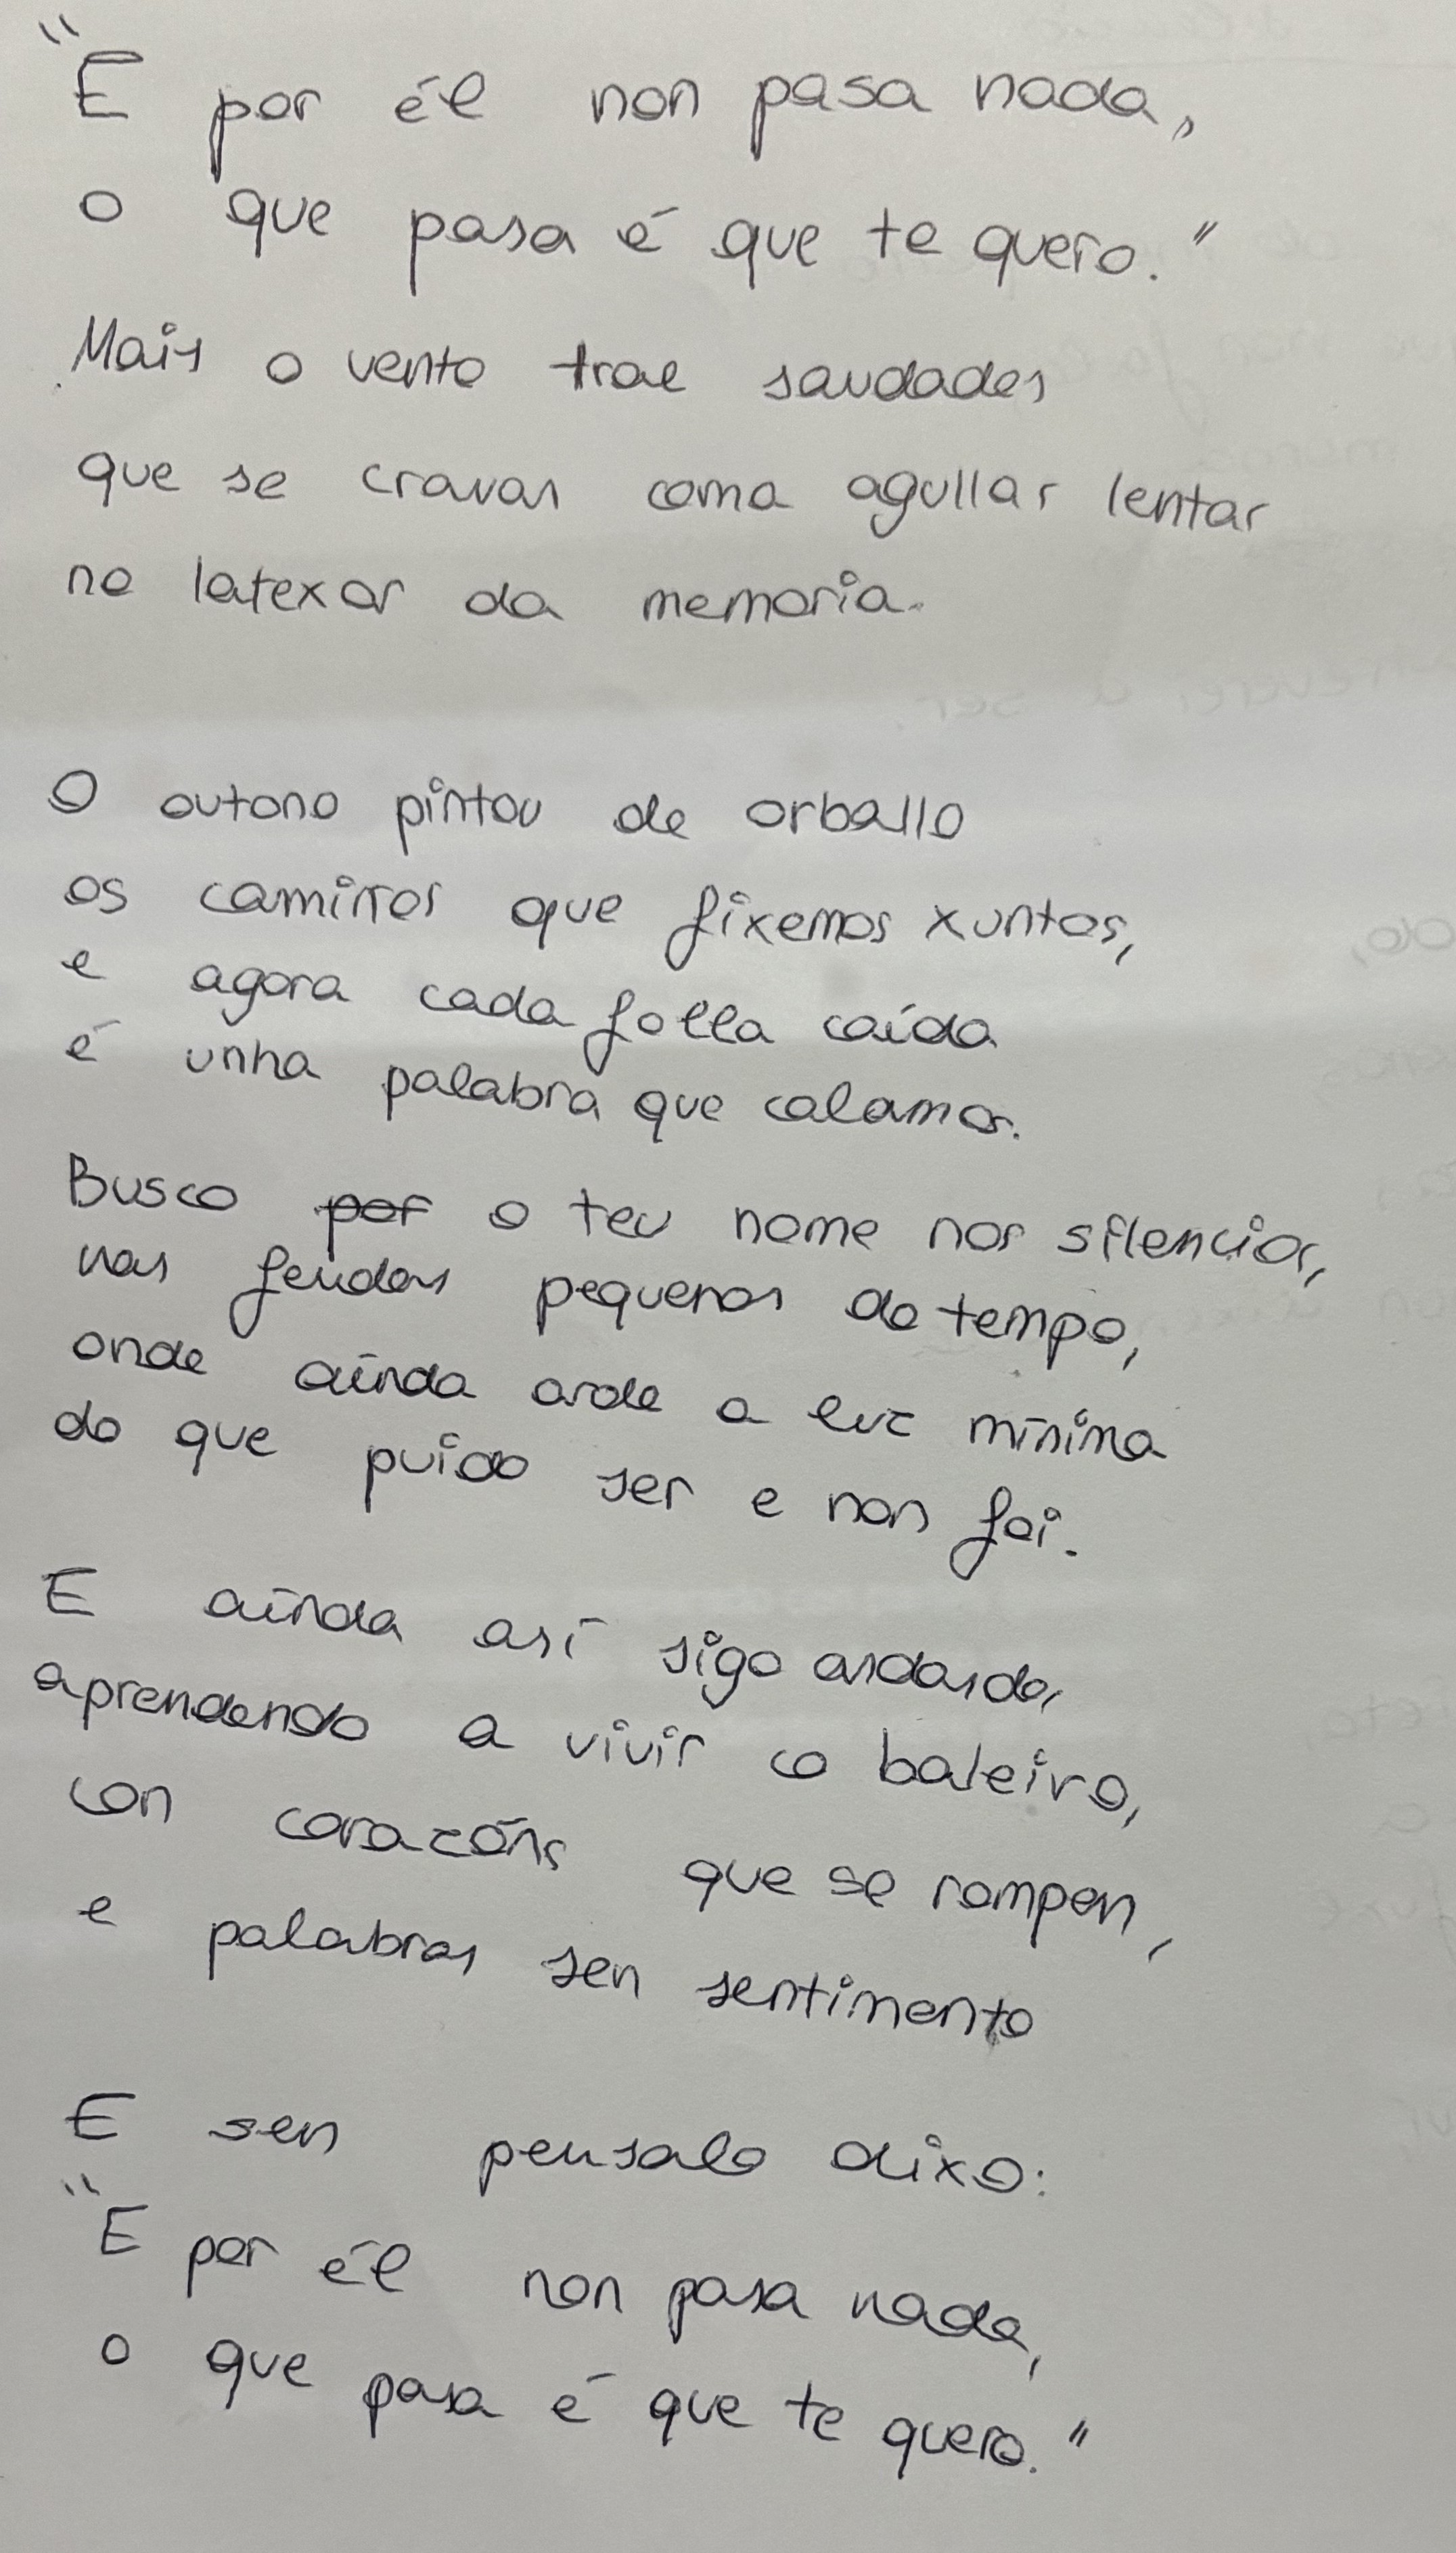 "E por él non pasa nada,
o que pasa é que te quero."
Mais o vento trae saudades
que se cravan coma agullas lentas
no latexar da memoria.
O outono pintou de orballo
os camiños que fixemos xuntos,
e agora cada folla caída
é unha palabra que calamos.
Busco por o teu nome nos silencios,
nas fendas pequenas do tempo,
onde aínda arde a luz mínima
do que puido ser e non foi.
E aínda así sigo andando,
aprendendo a vivir co baleiro,
con corazóns que se rompen,
e palabras sen sentimento
E sen pensalo dixo:
"E por él non pasa nada,
o que pasa é que te quero."